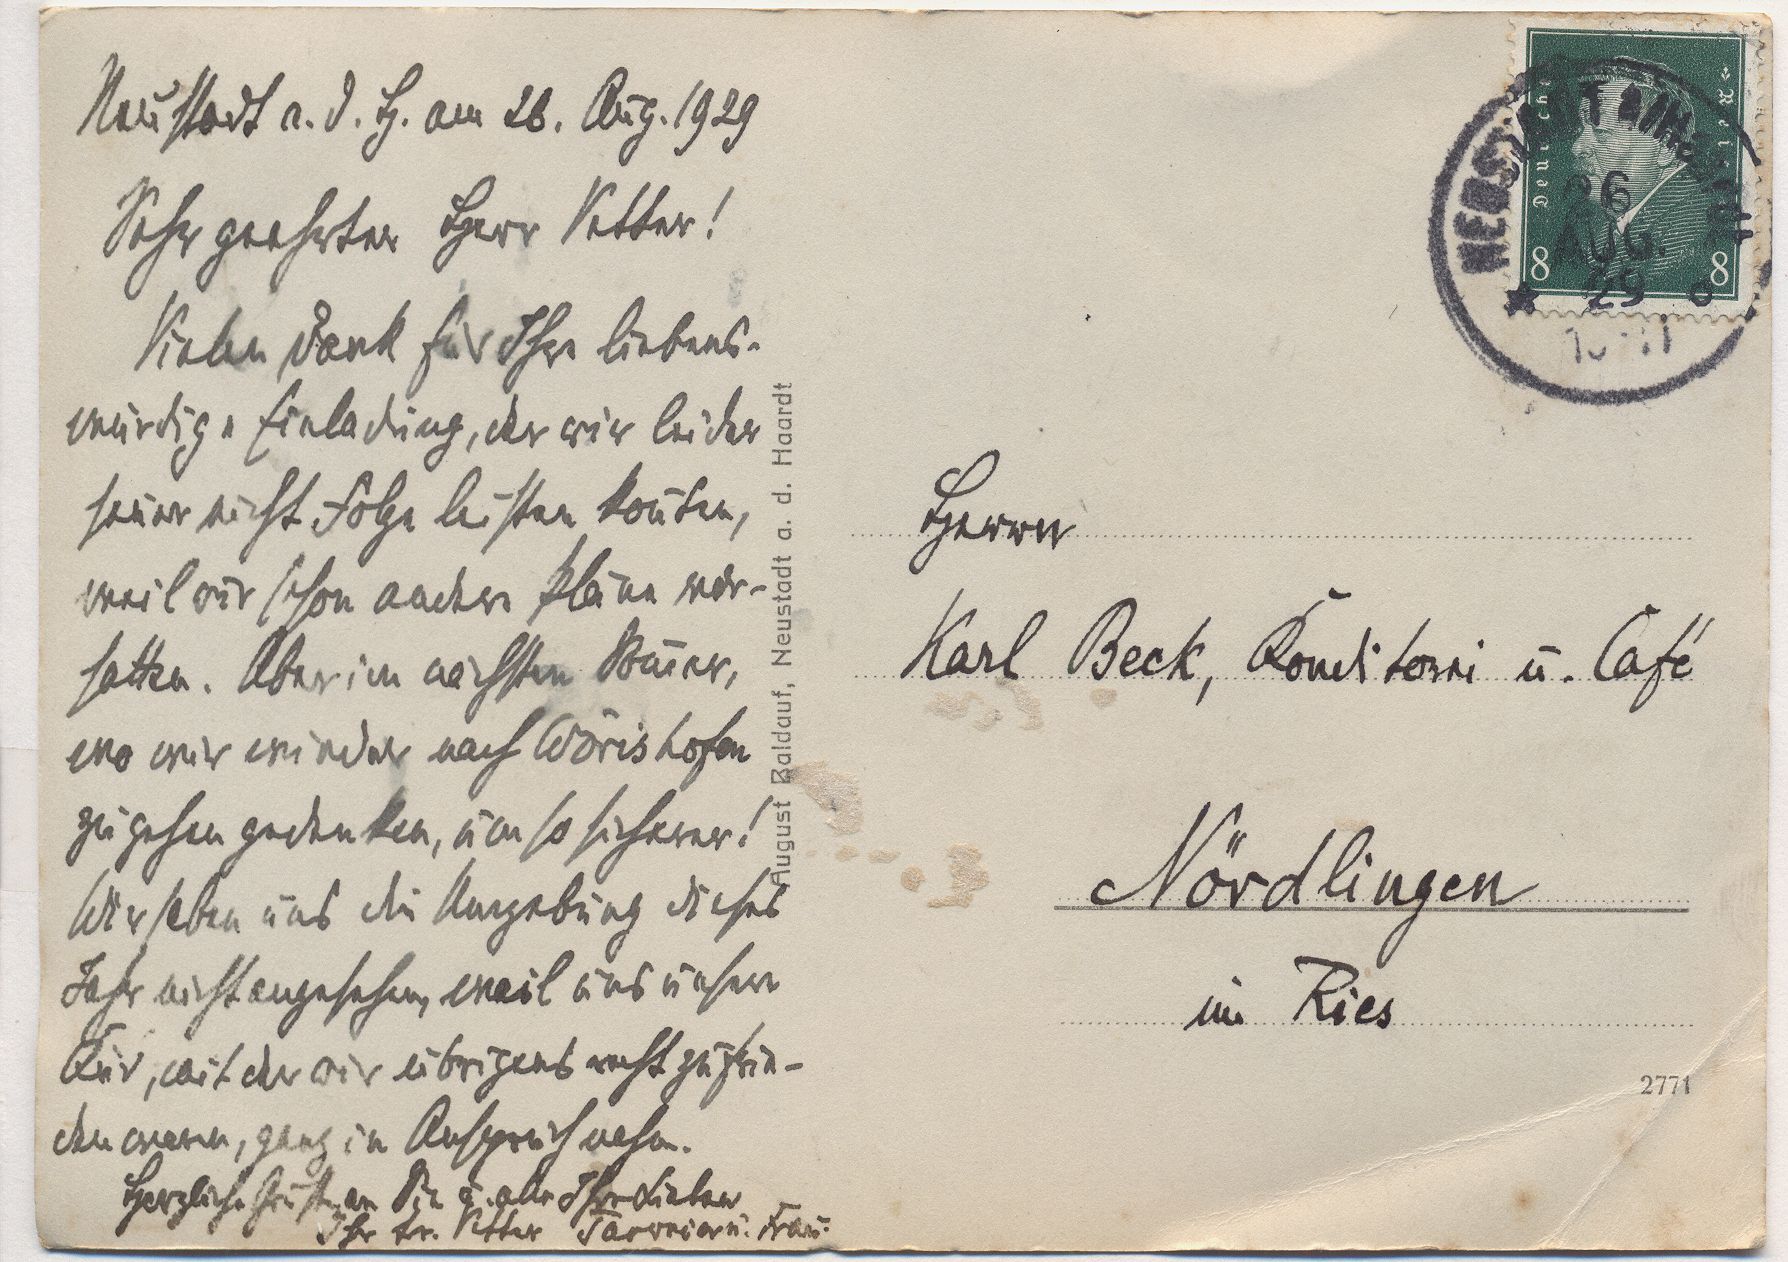 Neustadt a. d. H. am 26. Aug. 1929
Sehr geehrter Herr Vetter!
Vielen Dank für Ihre liebens-
würdige Einladung, der wir leider
heuer nicht Folge leisten konten,
weil wir schon andere Pläne vor-
hatten. Aber im nächsten Somer,
wo wir wieder nach Wörishofen
zu gehen gedenken, um so sicherer!
Wir haben uns die Umgebung dieses
Jahr nicht angesehen, weil uns unsere
Kur, mit der wir übrigens recht zufrie-
den waren, ganz in Anspruch nahm.
Herzliche Grüße an Sie u. alle Ihre Lieben
Ihr tr. Vetter u. Frau.
August Baldauf, Neustadt a. d. Haardt
Deutsches Reich
8 8
NEUSTADT a/Haardt
26
AUG.
29
Herrn
Karl Beck, Konditorei u. Café
Nördlingen
im Ries
2771